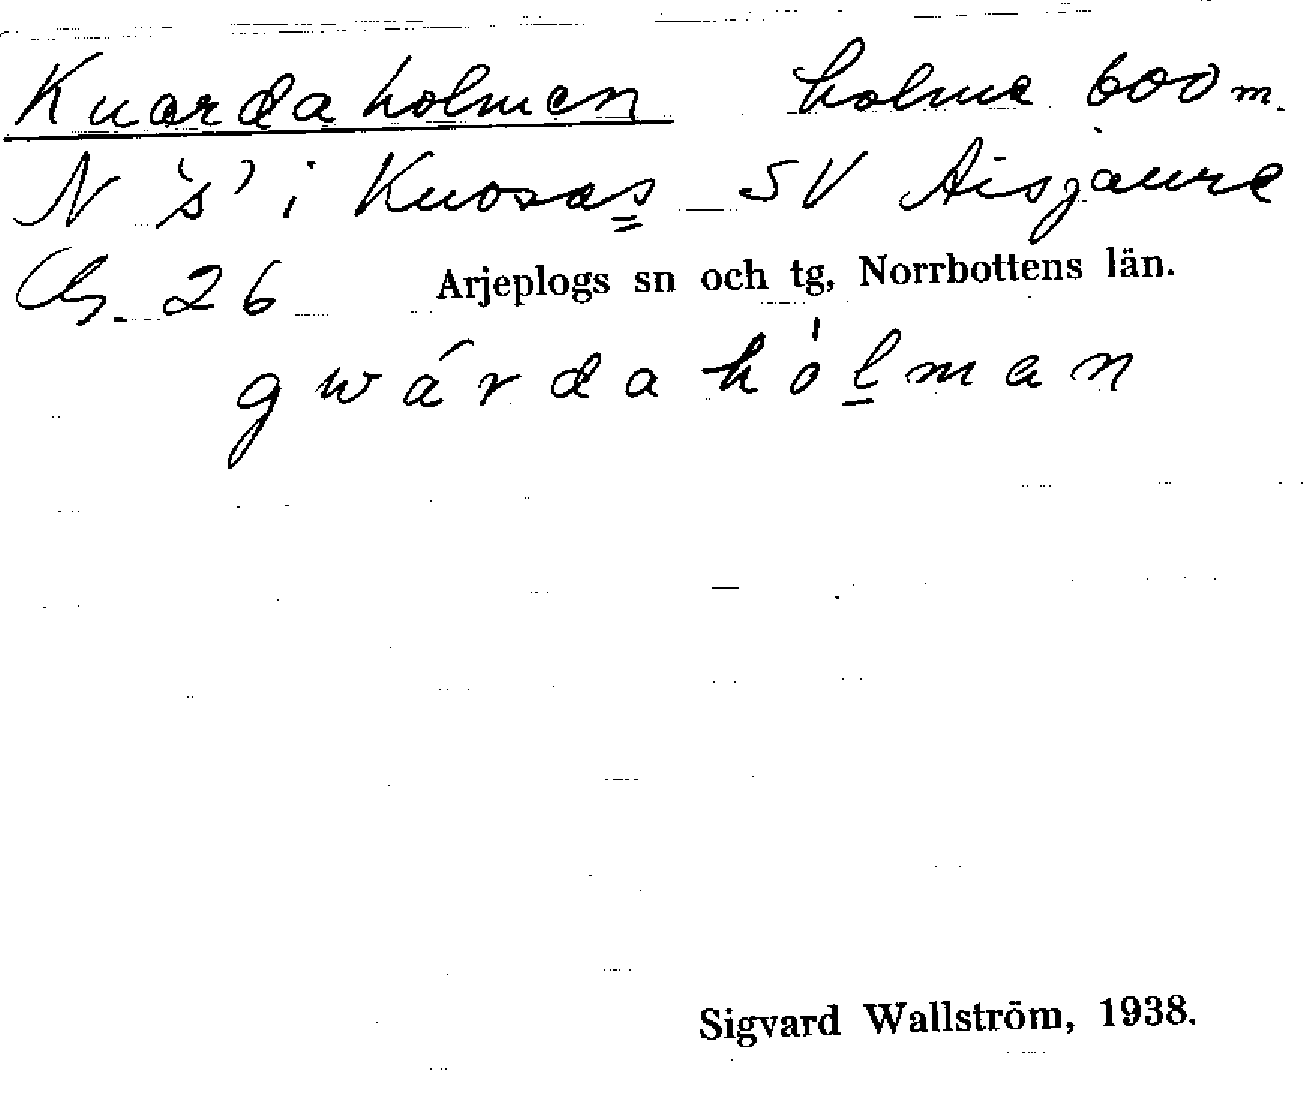 Kuardaholmen holme 600 m.
N 's' i Kuosas SV Aisjaure
G. 26 Arjeplogs sn och tg, Norrbottens län.
gwárdahólman
Sigvard Wallström, 1938.